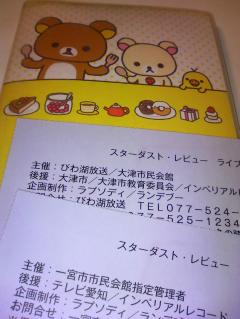 スターダスト・レビュー ライブ
主催：びわ湖放送／大津市民会館
後援：大津市／大津市教育委員会／インペリアルレコ
企画制作：ラプソディ／ランデブー
びわ湖放送 TEL077-524-
077-525-1234
スターダスト・レビュー
主催：一宮市市民会館指定管理者
後援：テレビ愛知／インペリアルレコード
企画制作：ラプソディ／ラン
お問合せ：